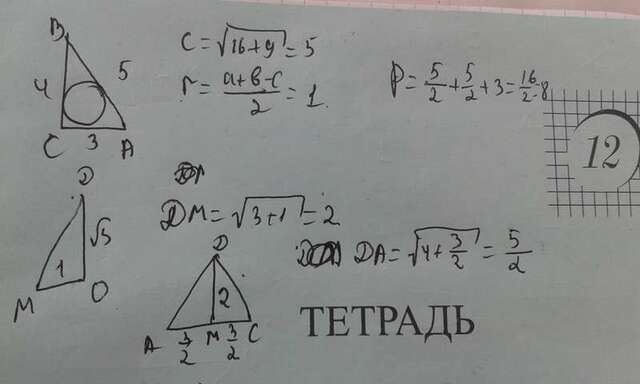 B
4
5
C
3
A
C = √16+9 = 5
r = a+b-c/2 = 1
P = 5/2 + 5/2 + 3 = 16/2 = 8
12
D
√3
1
M
O
DM = √3+1 = 2
D
2
A
3/2
M
3/2
C
DA = √4+3/2 = 5/2
ТЕТРАДЬ